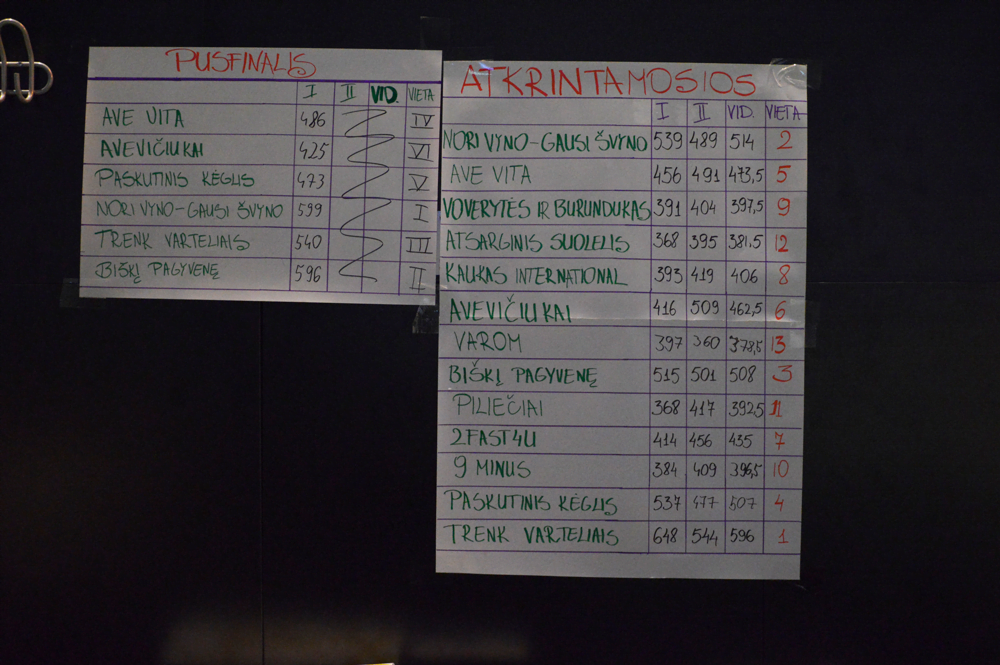 PUSFINALIS
I II VID. VIETA
AVE VITA 486 IV
AVEVIČIUKAI 425 VI
PASKUTINIS KĖGLIS 473 V
NORI VYNO-GAUSI ŠVYNO 599 I
TRENK VARTELIAIS 540 III
BIŠKĮ PAGYVENĘ 596 II
ATKRINTAMOSIOS
I II VID. VIETA
NORI VYNO-GAUSI ŠVYNO 539 489 514 2
AVE VITA 456 491 473,5 5
VOVERYTĖS IR BURUNDUKAS 391 404 397,5 9
ATSARGINIS SUOLELIS 368 395 381.5 12
KAUKAS INTERNATIONAL 393 419 406 8
AVEVIČIUKAI 416 509 462,5 6
VAROM 397 360 378,5 13
BIŠKĮ PAGYVENĘ 515 501 508 3
PILIEČIAI 368 417 392,5 11
2FAST4U 414 456 435 7
9 MINUS 384 409 396,5 10
PASKUTINIS KĖGLIS 537 477 507 4
TRENK VARTELIAIS 648 544 596 1